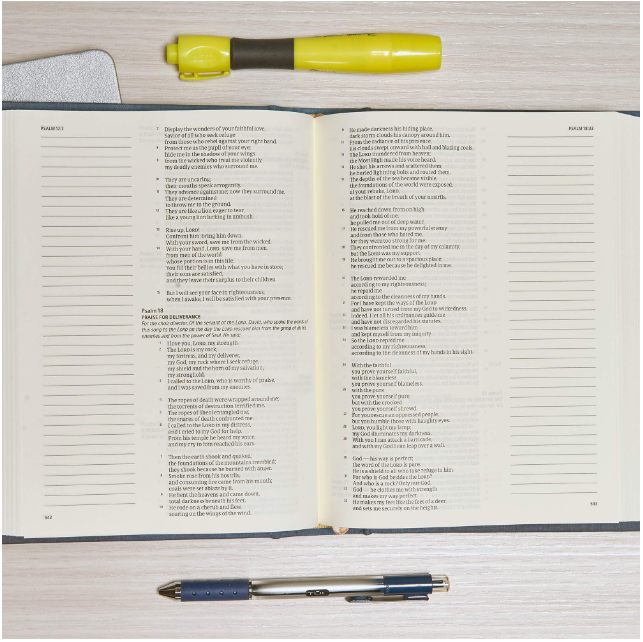 PSALM 17:7
7 Display the wonders of your faithful love,
Savior of all who seek refuge
from those who rebel against your right hand.
8 Protect me as the pupil of your eye;
hide me in the shadow of your wings
9 from the wicked who treat me violently,
my deadly enemies who surround me.
10 They are uncaring;
their mouths speak arrogantly.
11 They advance against me; now they surround me.
They are determined
to throw me to the ground.
12 They are like a lion eager to tear,
like a young lion lurking in ambush.
13 Rise up, LORD!
Confront him; bring him down.
With your sword, save me from the wicked.
14 With your hand, LORD, save me from men,
from men of the world
whose portion is in this life:
You fill their bellies with what you have in store;
their sons are satisfied,
and they leave their surplus to their children.
15 But I will see your face in righteousness;
when I awake, I will be satisfied with your presence.
Psalm 18
PRAISE FOR DELIVERANCE
For the choir director. Of the servant of the LORD, David, who spoke the words of
this song to the LORD on the day the LORD rescued him from the grasp of all his
enemies and from the power of Saul. He said:
1 I love you, LORD, my strength.
2 The LORD is my rock,
my fortress, and my deliverer,
my God, my rock where I seek refuge,
my shield and the horn of my salvation,
my stronghold.
3 I called to the LORD, who is worthy of praise,
and I was saved from my enemies.
4 The ropes of death were wrapped around me;
the torrents of destruction terrified me.
5 The ropes of Sheol entangled me;
the snares of death confronted me.
6 I called to the LORD in my distress,
and I cried to my God for help.
From his temple he heard my voice,
and my cry to him reached his ears.
7 Then the earth shook and quaked;
the foundations of the mountains trembled;
they shook because he burned with anger.
8 Smoke rose from his nostrils,
and consuming fire came from his mouth;
coals were set ablaze by it.
9 He bent the heavens and came down,
total darkness beneath his feet.
10 He rode on a cherub and flew,
soaring on the wings of the wind.
542
PSALM 18:33
11 He made darkness his hiding place,
dark storm clouds his canopy around him.
12 From the radiance of his presence,
his clouds swept onward with hail and blazing coals.
13 The LORD thundered from heaven;
the Most High made his voice heard.
14 He shot his arrows and scattered them;
he hurled lightning bolts and routed them.
15 The depths of the sea became visible,
the foundations of the world were exposed,
at your rebuke, LORD,
at the blast of the breath of your nostrils.
16 He reached down from on high
and took hold of me;
he pulled me out of deep water.
17 He rescued me from my powerful enemy
and from those who hated me,
for they were too strong for me.
18 They confronted me in the day of my calamity,
but the LORD was my support.
19 He brought me out to a spacious place;
he rescued me because he delighted in me.
20 The LORD rewarded me
according to my righteousness;
he repaid me
according to the cleanness of my hands.
21 For I have kept the ways of the LORD
and have not turned from my God to wickedness.
22 Indeed, I let all his ordinances guide me
and have not disregarded his statutes.
23 I was blameless toward him
and kept myself from my iniquity.
24 So the LORD repaid me
according to my righteousness,
according to the cleanness of my hands in his sight.
25 With the faithful
you prove yourself faithful,
with the blameless
you prove yourself blameless,
26 with the pure
you prove yourself pure,
but with the crooked
you prove yourself shrewd.
27 For you rescue an oppressed people,
but you humble those with haughty eyes.
28 LORD, you light my lamp;
my God illuminates my darkness.
29 With you I can attack a barricade,
and with my God I can leap over a wall.
30 God — his way is perfect;
the word of the LORD is pure.
He is a shield to all who take refuge in him.
31 For who is God besides the LORD?
And who is a rock? Only our God.
32 God — he clothes me with strength
and makes my way perfect.
33 He makes my feet like the feet of a deer
and sets me securely on the heights.
543